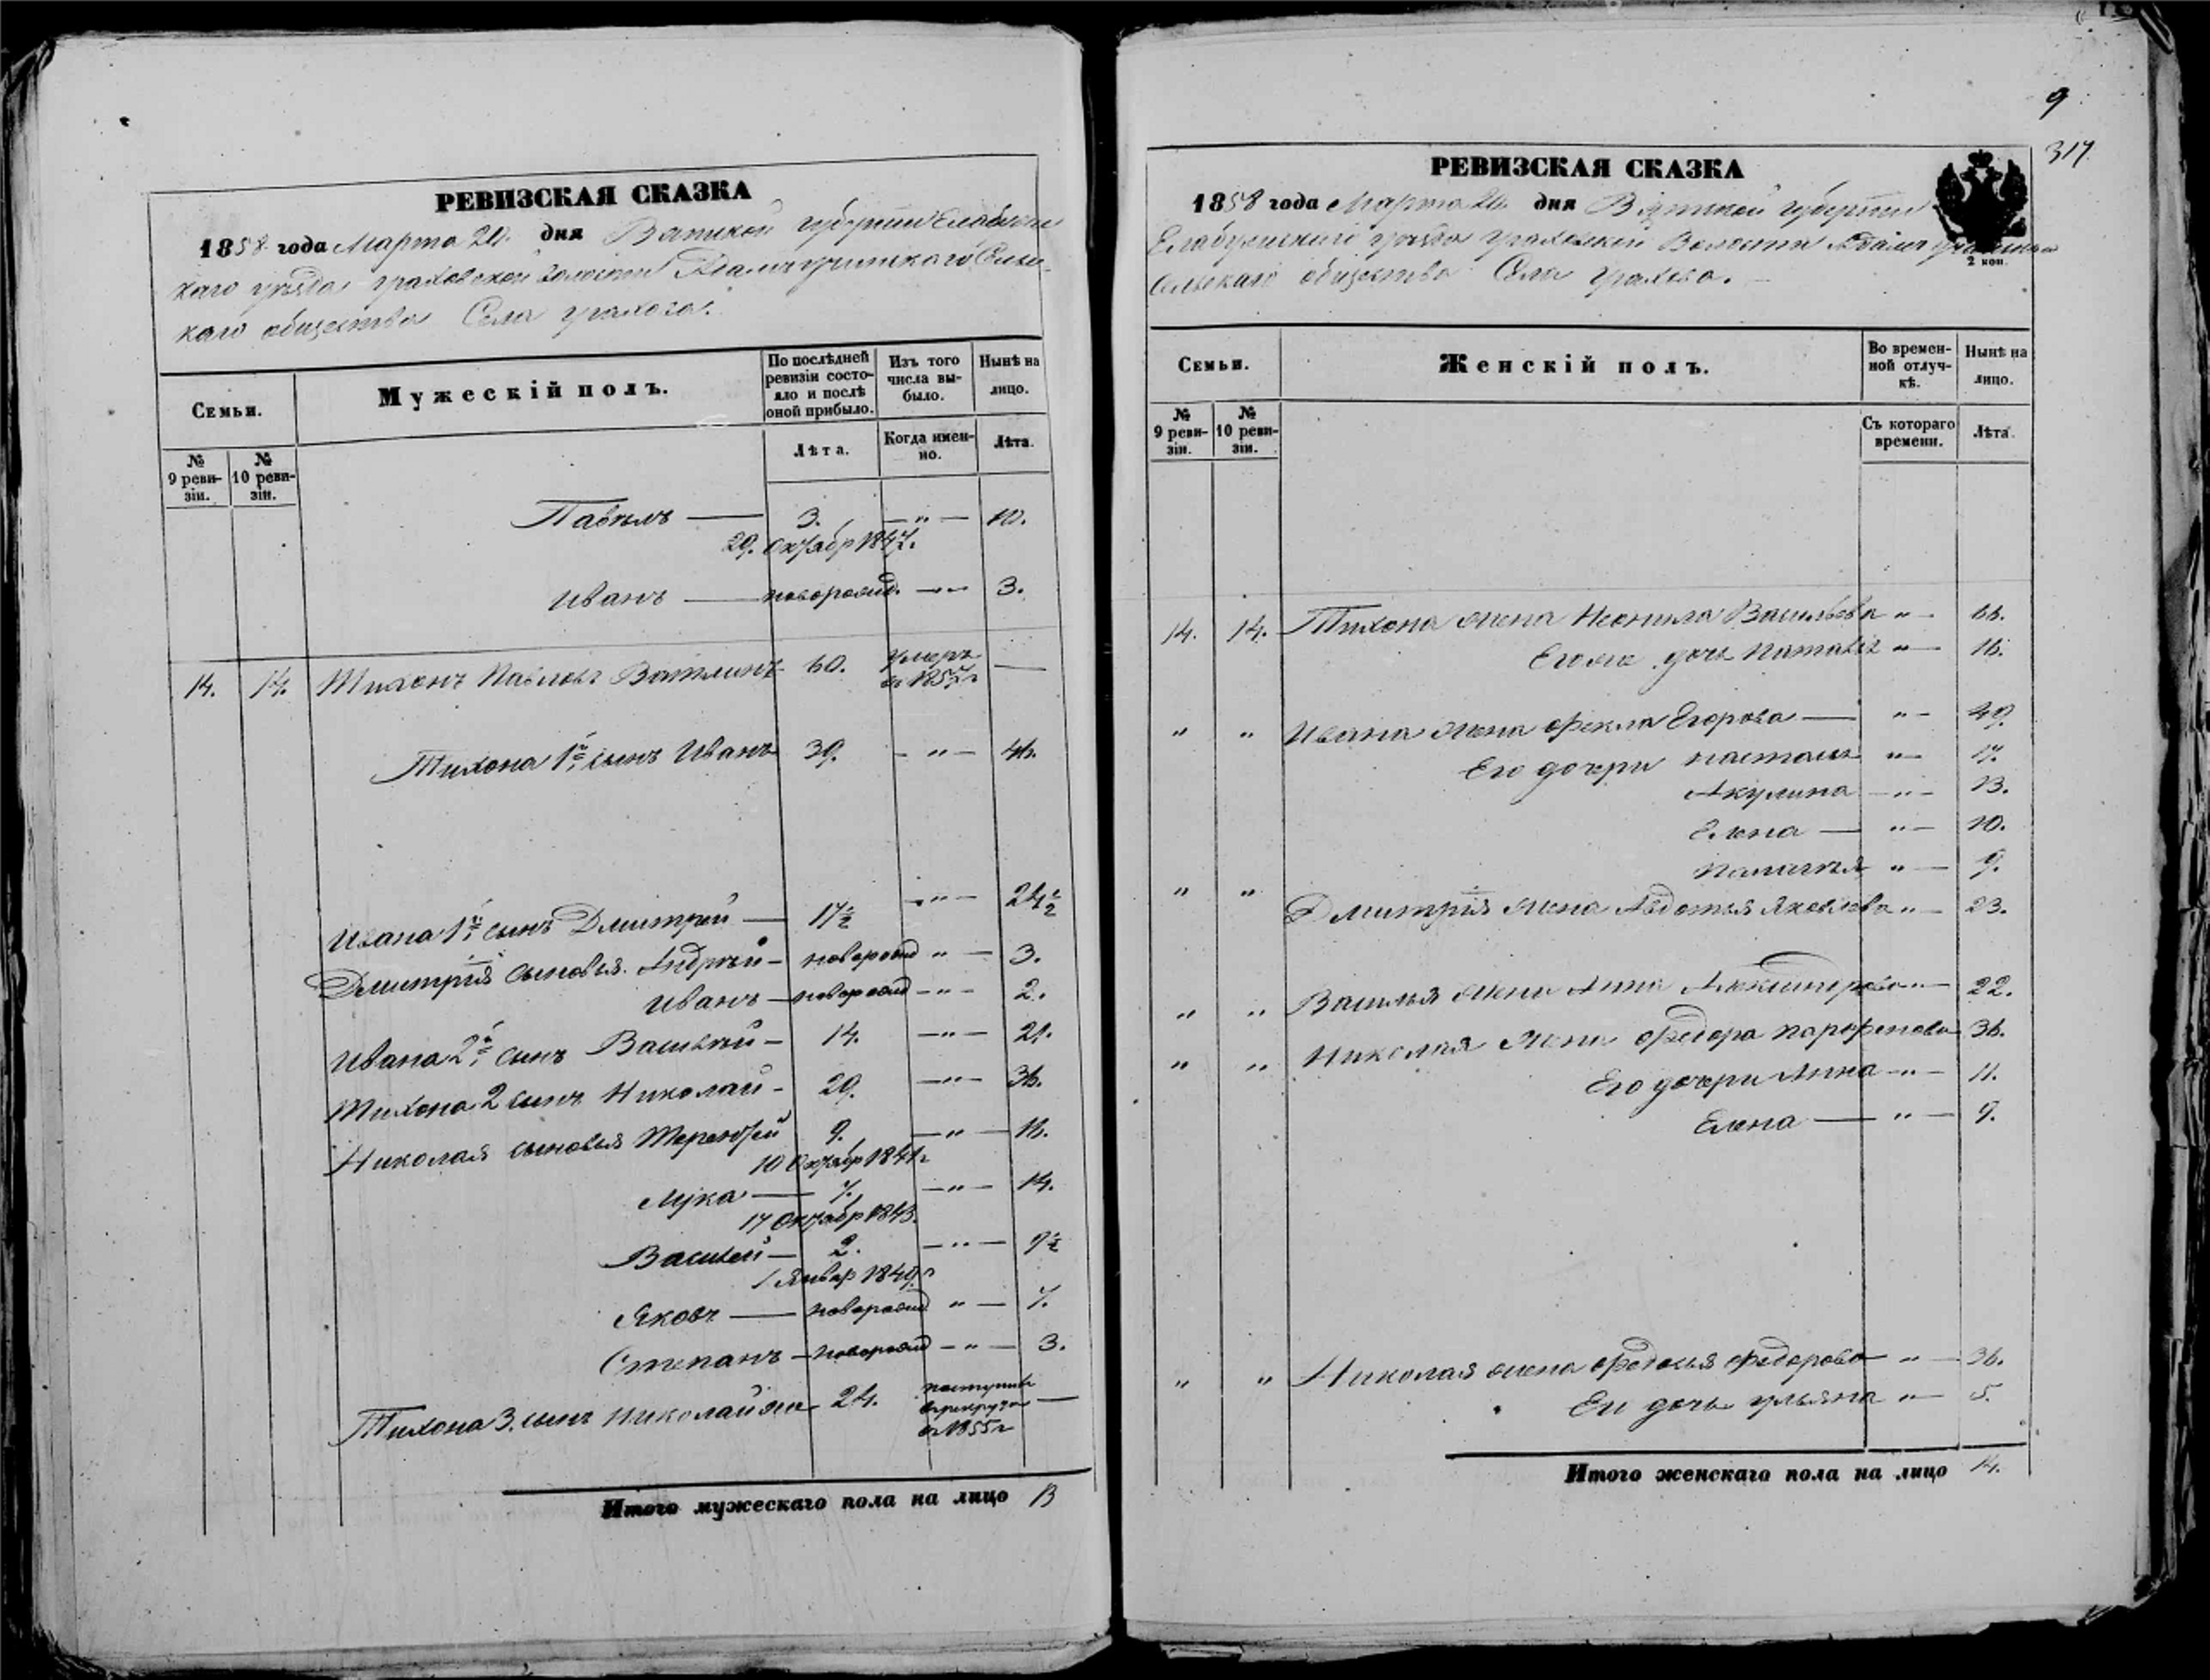 РЕВИЗСКАЯ СКАЗКА
1858 года Марта 20. дня Вятской губернии Елабужс
каго уѣзда граховской волости Сельс
каго общества Села грахова.
Семьи.
Мужескій полъ.
По послѣдней ревизіи состояло и послѣ оной прибыло.
Изъ того числа выбыло.
Нынѣ на лицо.
№ 9 ревизіи.
№ 10 ревизіи.
Лѣта.
Когда именно.
Лѣта.
Павелъ — 3. — " — 10.
29. Октябр 1847.
Иванъ — новорожд. — " — 3.
14. 14. Тихонъ Павловъ Ватлинъ 60. умеръ въ 1857 г —
Тихона 1й сынъ Иванъ 39. — " — 46.
Ивана 1й сынъ Дмитрей — 17½ — " — 24½
Дмитрія сыновья Андрей — новорожд " — 3.
Иванъ — новорожд — " — 2.
Ивана 2й сынъ Василей — 14. — " — 21.
Тихона 2 сынъ Николай — 29. — " — 36.
Николая сыновья Терентей 9. — " — 16.
10 Октябр 1841 г
Лука — 7. — " — 14.
17 Октябр 1843.
Василей — 2. — " — 9½
1 Январ 1849 г
Яковъ — новорожд " — 7.
Степанъ — новорожд — " — 3.
Тихона 3. сынъ Николай же 24. поступилъ в рекруты в 1855 г —
Итого мужескаго пола на лицо 13
9
317.
РЕВИЗСКАЯ СКАЗКА
1858 года Марта 20. дня Вятской губернии
Елабужскаго уѣзда граховской Волости
Сельскаго общества Села грахова. —
2 коп.
Семьи.
Женскій полъ.
Во временной отлучкѣ.
Нынѣ на лицо.
№ 9 ревизіи.
№ 10 ревизіи.
Съ котораго времени.
Лѣта.
14. 14. Тихона жена Неонила Васильева " — 66.
Егоже дочь Наталья " — 16.
" " Ивана жена Фекла Егорова — " — 49.
Его дочери настасья " — 17.
Акулина — " — 13.
Елена — " — 10.
Палагѣя " — 9.
" " Дмитрія жена Авдотья Яковлева " — 23.
" " Василья жена Анна Александрова " — 22.
" " Николая жена Федора парфенова 36.
Его дочери Анна — " — 11.
Елена — " — 9.
" " Николая жена Федосья Федорова " — 36.
Еи дочь ульяна " — 5.
Итого женскаго пола на лицо 14.